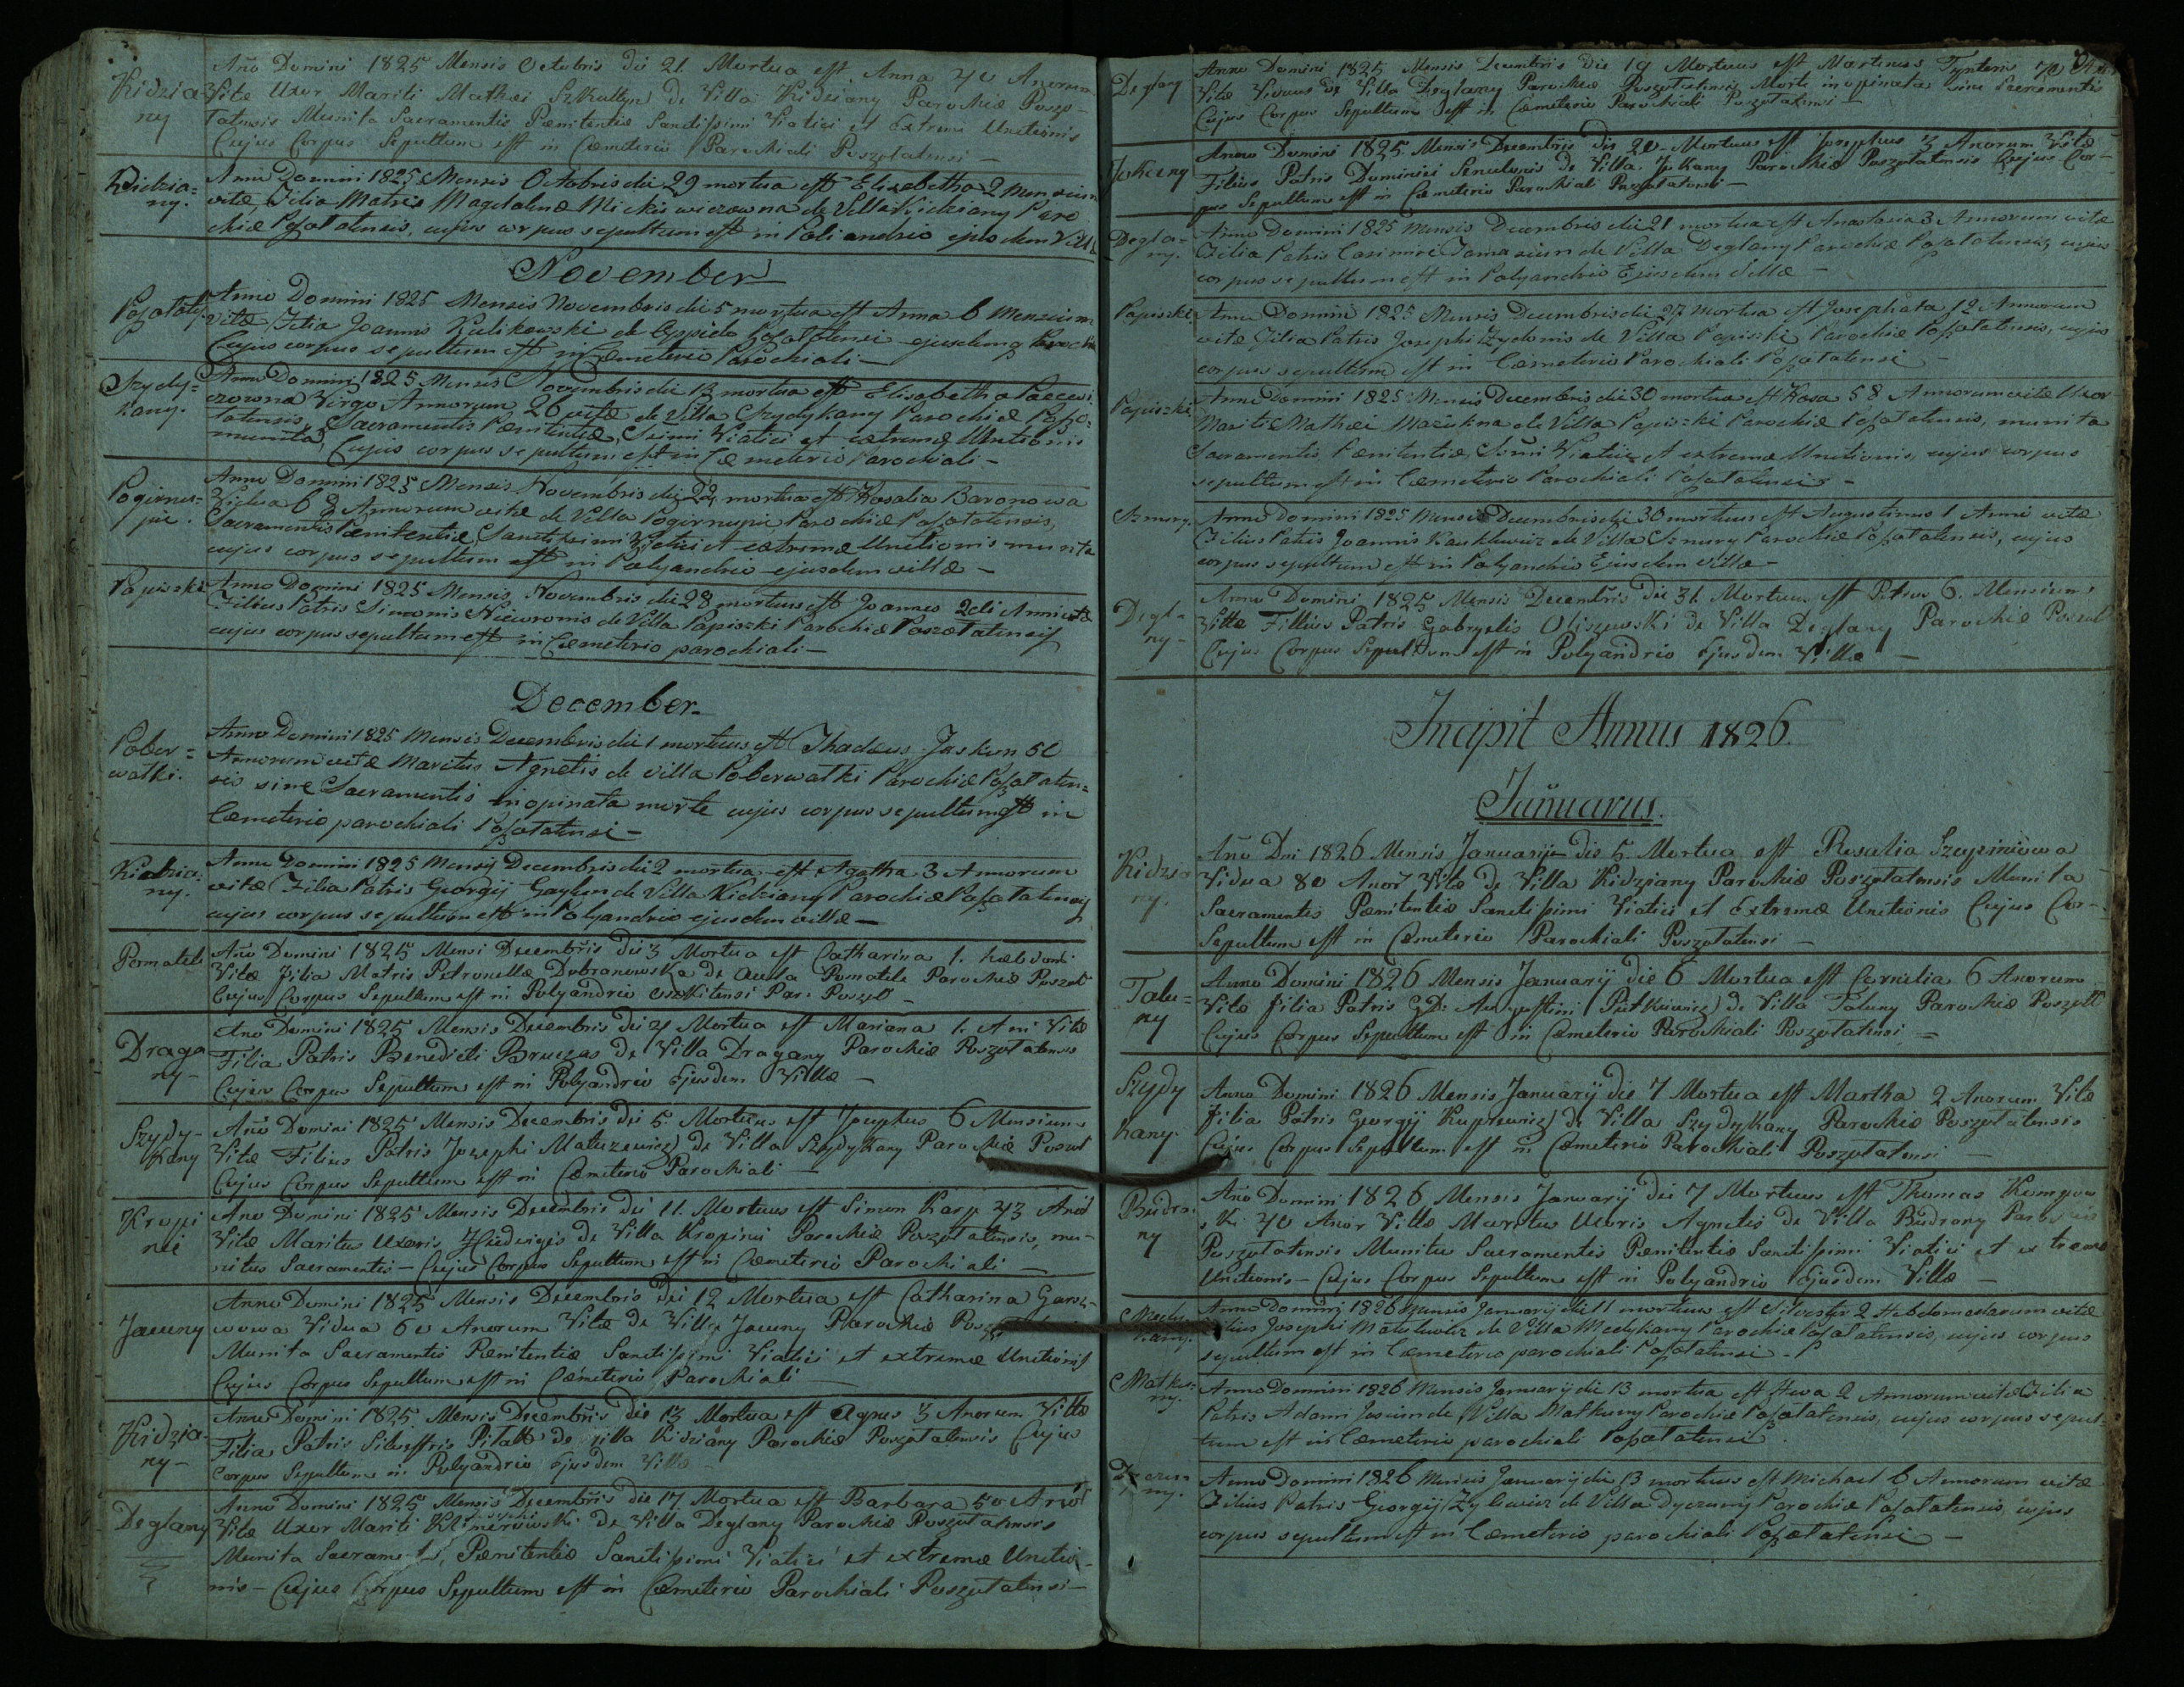 Kidzia
ny
Año Domini 1825 Mensis Octobris die 21. Mortua est Anna 40 Anorum
Vitæ Uxor Mariti Mathei de Villa Kidziany Parochiæ Poszo-
latensis Munita Sacramentis Pænitentiæ Sanctissimi Viatici et Extremæ Unctionis
Cujus Corpus Sepultum est in Cæmeterio Parochiali Poszolatensi —
Kidzia=
ny.
Anno Domini 1825 Mensis Octobris die 29 mortua est Elisabetha 2 Mensium
vitæ, Filia Matris Magdalenæ Mickiewiczowna de Villa Kidziany Paro
chiæ Poszolatensis, cujus corpus sepultum est in Poliandrio ejusdem Villæ
November
Anno Domini 1825 Mensis Novembris die 5 mortua est Anna 6 Mensium
vitæ Filia Joannis Kulikowski de Oppido ejusdemq Parochiæ
Cujus corpus sepultum est in Cæmeterio Parochiali —
Szydy=
kany.
Anno Domini 1825 Mensis Novembris die 13 mortua est Elisabetha
czowna Virgo Annorum 26 vitæ de Villa Szydykany Parochiæ Poszo-
latensis, Sacramentis Pænitentiæ, Ssimi Viatici et extremæ Unctionis
munita, Cujus corpus sepultum est in Cæmeterio Parochiali —
Pogirnu=
pie.
Anno Domini 1825 Mensis Novembris die 22 mortua est Rosalia Baronowa
Vidua 63 Annorum vitæ de Villa Pogirnupie Parochiæ Poszolatensis,
Sacramentis Pænitentiæ Sanctissimi Viatici et extremæ Unctionis munita
cujus corpus sepultum est in Polyandrio ejusdem villæ —
Papiszki
Anno Domini 1825 Mensis Novembris die 28 mortuus est Joannes Anni vitæ
Filius Patris Simonis de Villa Papiszki Parochiæ Poszolatensis
cujus corpus sepultum est in Cæmeterio parochiali —
December
Pober=
watki.
Anno Domini 1825 Mensis Decembris die 1 mortuus est Thadeus Jaskun 50
Annorum vitæ Maritus Agnetis de villa Poberwatki Parochiæ Poszolaten=
sis sine Sacramentis inopinata morte cujus corpus sepultum est in
Cæmeterio parochiali Poszolatensi —
Kidzia=
ny.
Anno Domini 1825 Mensis Decembris die 2 mortua est Agatha 3 Annorum
vitæ Filia Patris Georgij Gaylun de Villa Kidziany Parochiæ Poszolatensis
cujus corpus sepultum est in Polyandrio ejusdem villæ —
Pomatele
Año Domini 1825 Mensi Decembris die 3 Mortua est Catharina 1.
Vitæ Filia Matris Petronellæ Dobranowska de Aula Pomatele Parochiæ Poszol
Cujus Corpus Sepultum est in Polyandrio Par: Poszol —
Draga
ny-
Año Domini 1825 Mensis Decembris die 4 Mortua est Mariana 1. Ani Vitæ
Filia Patris Benedicti Bruczas de Villa Dragany Parochiæ Poszolatensis
Cujus Corpus Sepultum est in Polyandrio Ejusdem Villæ —
Szydy-
kany
Año Domini 1825 Mensis Decembris die 5. Mortuus est Josephus 6 Mensium
Vitæ Filius Patris Josephi Matuzewicz de Villa Szydykany Parochiæ Poszol
Cujus Corpus Sepultum est in Cæmeterio Parochiali —
Kropi
nie
Ano Domini 1825 Mensis Decembris die 11. Mortuus est Simon Karp 43 Anor
Vitæ Maritus Uxoris Hedwigis de Villa Kropinie Parochiæ Poszolatensis, mu-
nitus Sacramentis — Cujus Corpus Sepultum est in Cæmeterio Parochiali —
Jacuny
Anno Domini 1825 Mensis Decembris die 12 Mortua est Catharina
wowa Vidua 60 Anorum Vitæ de Villa Jacuny Parochiæ
Munita Sacramentis Pænitentiæ Sanctissimi Viatici et extremæ Unctionis
Cujus Corpus Sepultum est in Cæmeterio Parochiali —
Kidzia-
ny-
Anno Domini 1825 Mensis Decembris die 13 Mortua est Agnes 3 Anorum Vitæ
Filia Patris Silvestris de Villa Kidziany Parochiæ Poszolatensis Cujus
Corpus Sepultum in Polyandrio Ejusdem Villæ —
Deglany
Anno Domini 1825 Mensis Decembris die 17. Mortua est Barbara 50 Anor
Vitæ Uxor Mariti de Villa Deglany Parochiæ Poszolatensis
Munita Sacramentis, Pænitentiæ Sanctissimi Viatici et extremæ Unctio-
nis — Cujus Corpus Sepultum est in Cæmeterio Parochiali Poszolatensi —
Deglany
Anno Domini 1825 Mensis Decembris die 19 Mortuus est Martinus 70
Vitæ Viduus de Villa Deglany Parochiæ Poszolatensis Morte inopinata sine Sacramentis
Cujus Corpus Sepultum est in Cæmeterio Parochiali Poszolatensi —
Anno Domini 1825 Mensis Decembris die 20 Mortuus est Josephus 3 Anorum Vitæ
Filius Patris Dominici de Villa Parochiæ Poszolatensis Cujus Cor-
pus Sepultum est in Cæmeterio Parochiali Poszolatensi —
Degla=
ny.
Anno Domini 1825 Mensis Decembris die 21 mortua est Anastasia 3 Annorum vitæ
Filia Patris Casimiri de Villa Deglany Parochiæ Poszolatensis, cujus
corpus sepultum est in Polyandrio Ejusdem Villæ —
Papiszki
Anno Domini 1825 Mensis Decembris die 27 mortua est Josephata 12 Annorum
vitæ Filia Patris Josephi de Villa Papiszki Parochiæ Poszolatensis, cujus
corpus sepultum est in Cæmeterio Parochiali Poszolatensi —
Papiszki
Anno Domini 1825 Mensis Decembris die 30 mortua est Rosa 58 Annorum vitæ Uxor
Mariti Mathæi de Villa Papiszki Parochiæ Poszolatensis, munita
Sacramentis, Pænitentiæ, Ssimi Viatici et extremæ Unctionis, cujus corpus
sepultum est in Cæmeterio Parochiali Poszolatensi —
Anno Domini 1825 Mensis Decembris die 30 mortuus est Augustinus 1 Anni vitæ
Filius Patris Joannis de Villa Parochiæ Poszolatensis, cujus
corpus sepultum est in Polyandrio Ejusdem villæ —
Degla-
ny-
Anno Domini 1825 Mensis Decembris die 31. Mortuus est Petrus 6. Mensium
Vitæ Fillius Patris Gabryelis Oliszewski de Villa Deglany Parochiæ Poszol
Cujus Corpus Sepultum est in Polyandrio Ejusdem Villæ —
Incipit Annus 1826.
Januarius.
Kidzia
ny.
Año Dni 1826 Mensis Januarij die 5. Mortua est Rosalia
Vidua 80 Anor Vitæ de Villa Kidziany Parochiæ Poszolatensis Munita
Sacramentis Pænitentiæ Sanctissimi Viatici et Extremæ Unctionis Cujus Cor-
Sepultum est in Cæmeterio Parochiali Poszolatensi —
Talu=
ny
Anno Domini 1826 Mensis Januarij die 6 Mortua est Cornelia 6 Anorum
Vitæ Filia Patris GD: Augustini Putkiewicz de Villa Taluny Parochiæ Poszoll
Cujus Corpus Sepultum est in Cæmeterio Parochiali Poszolatensi =
Szydy
kany.
Anno Domini 1826 Mensis Januarij die 7 Mortua est Martha 2 Anorum Vitæ
Filia Patris Georgij Kuprewicz de Villa Szydykany Parochiæ Poszolatensis
Cujus Corpus Sepultum est in Cæmeterio Parochiali Poszolatensi —
Budra
ny
Año Domini 1826 Mensis Januarij die 7 Mortuus est Thomas
ski 40 Anor Vitæ Maritus Uxoris Agnetis de Villa Budrany Parochiæ
Poszolatensis Munitus Sacramentis Pænitentiæ Sanctissimi Viatici et extremæ
Unctionis — Cujus Corpus Sepultum est in Polyandrio Ejusdem Villæ —
Medy-
kany.
Anno Domini 1826 Mensis Januarij die 11 mortuus est Silvester 2 Hebdomadarum vitæ
Filius Josephi Matulewicz de Villa Medykany Parochiæ Poszolatensis, cujus corpus
sepultum est in Cæmeterio parochiali Poszolatensi —
Matku=
ny.
Anno Domini 1826 Mensis Januarij die 13 mortua est Ewa 2 Annorum vitæ Filia
Patris Adami de Villa Matkuny Parochiæ Poszolatensis, cujus corpus sepul-
tum est in Cæmeterio parochiali Poszolatensi.
Dyczu=
ny.
Anno Domini 1826 Mensis Januarij die 13 mortuus est Michael 6 Annorum vitæ
Filius Patris Georgij Zylewicz de Villa Dyczuny Parochiæ Poszolatensis, cujus
corpus sepultum est in Cæmeterio parochiali Poszolatensi —